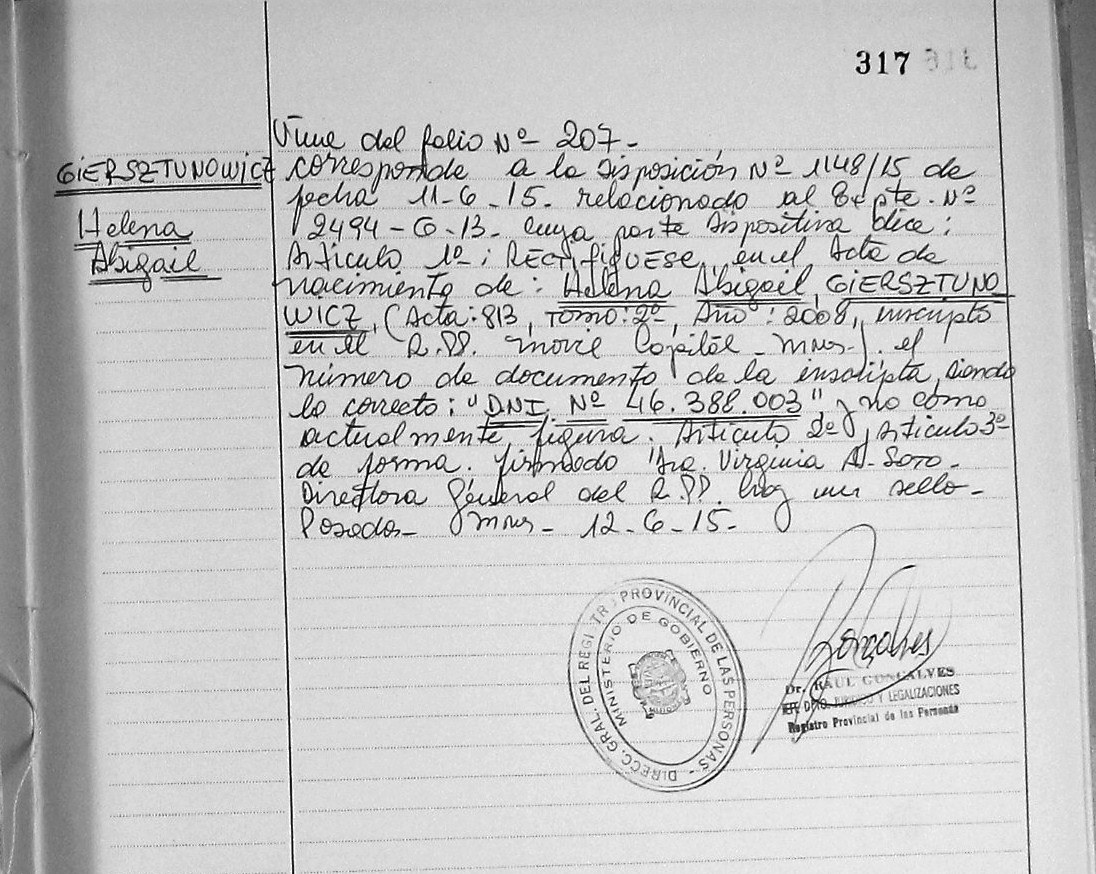 317
Viene del folio Nº 207-
GIERSZTUNOWICZ
Helena
Abigail
corresponde a la Disposición Nº 1148/15 de
fecha 11-6-15- relacionado al Expte. Nº
2494-G-13- cuya parte dispositiva dice:
Artículo 1º: RECTIFIQUESE, en el Acta de
nacimiento de: Helena Abigail GIERSZTUNO
WICZ, (Acta: 813, Tomo: 2º, Año: 2008, inscripto
en el R.PP. movil Capital - Mnes-). el
número de documento de la inscripta, siendo
lo correcto: "DNI Nº 46.388.003" y no como
actualmente figura. Artículo 2º y Artículo 3º
de forma. firmado Dra. Virginia A. Soto-
Directora General del R.PP. hay un sello-
Posadas- Mnes- 12-6-15-
DIRECC. GRAL. DEL REGISTR PROVINCIAL DE LAS PERSONAS -
MINISTERIO DE GOBIERNO
Gonçalves
Dr. RAUL GONCALVES
JEFE DPTO. JURIDICO Y LEGALIZACIONES
Registro Provincial de las Personas